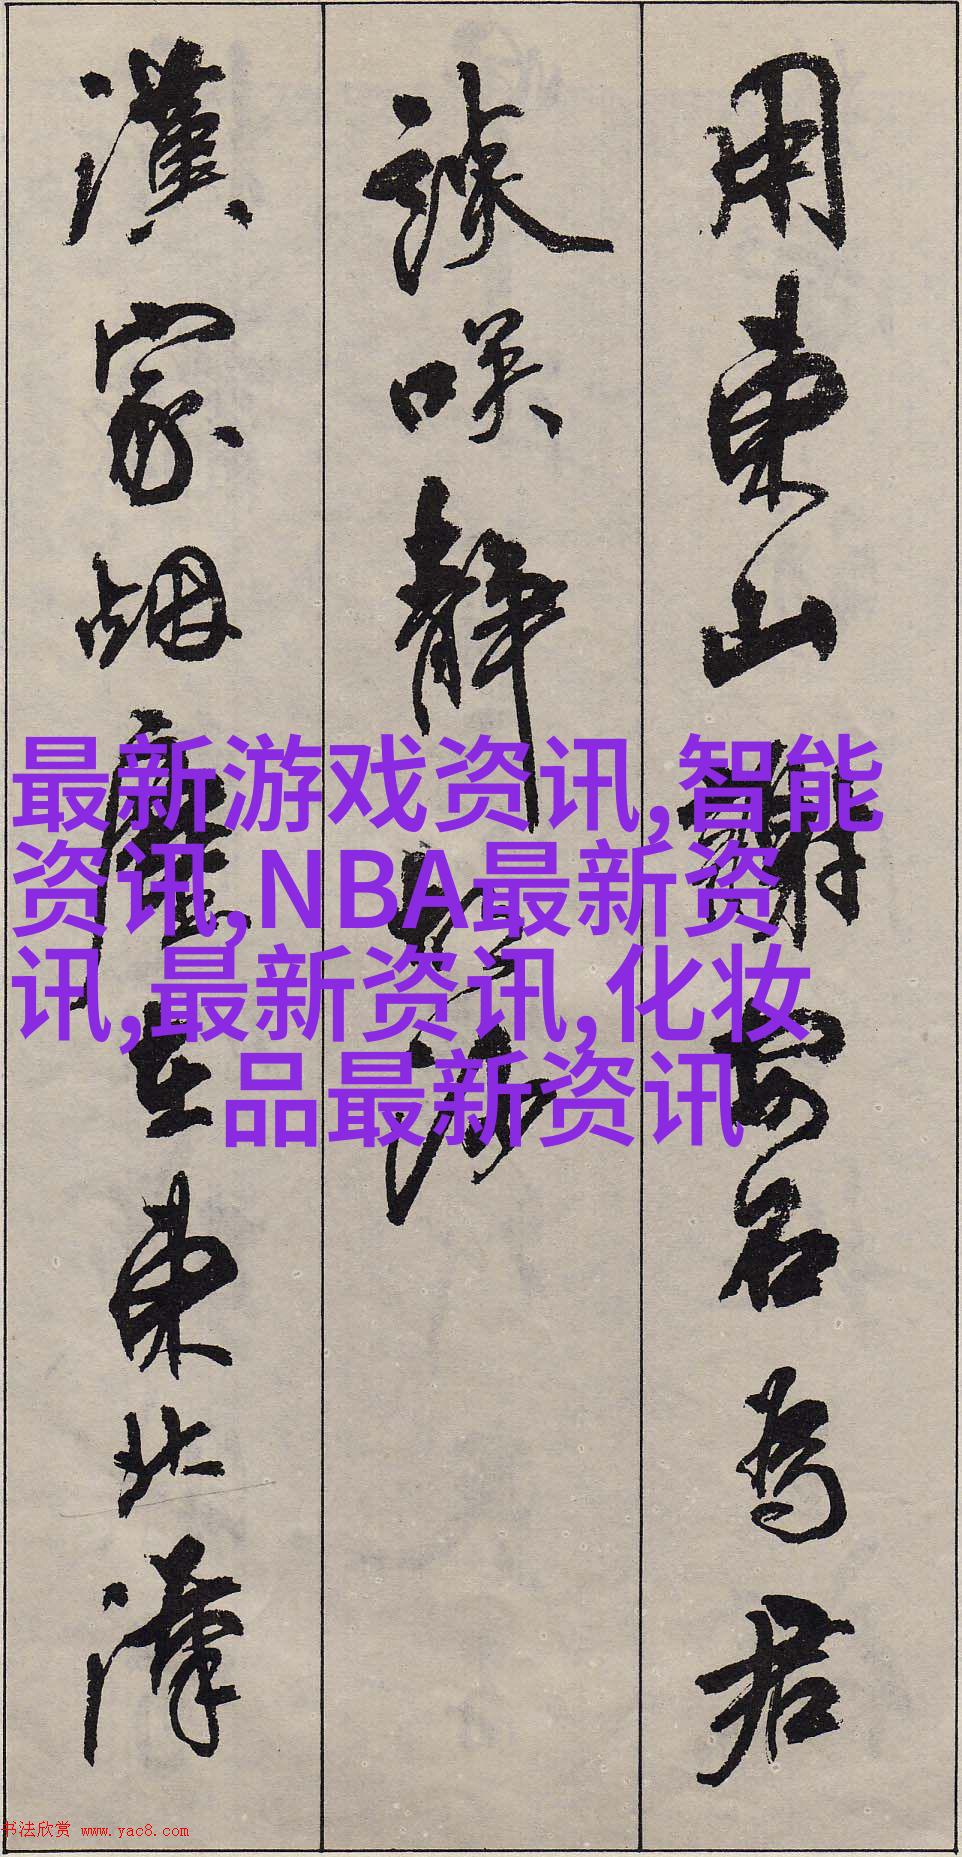 用東山謝安石為君
談咲静胡沙
漢家烟塵在東北漢
最新游戏资讯,智能
资讯,NBA最新资
讯,最新资讯,化妆
品最新资讯
书法欣赏 www.yac8.com